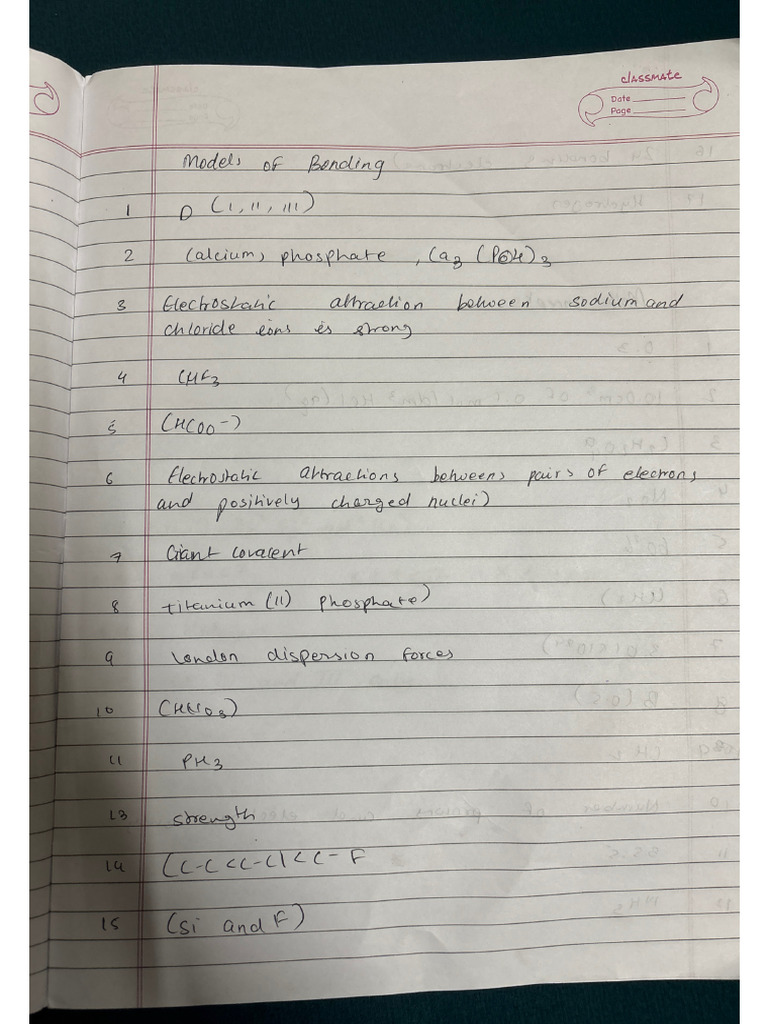 classmate
Date
Page
Models of Bonding
1 D (I, II, III)
2 Calcium, phosphate, Ca3 (PO4)3
3 Electrostatic attraction between sodium and
chloride ions is strong
4 CHF3
5 (HCOO-)
6 Electrostatic attractions betweens pairs of electrons
and positively charged nuclei)
7 Giant covalent
8 titanium (II) phosphate)
9 London dispersion forces
10
11 PH3
13 strength
14
15 (Si and F)